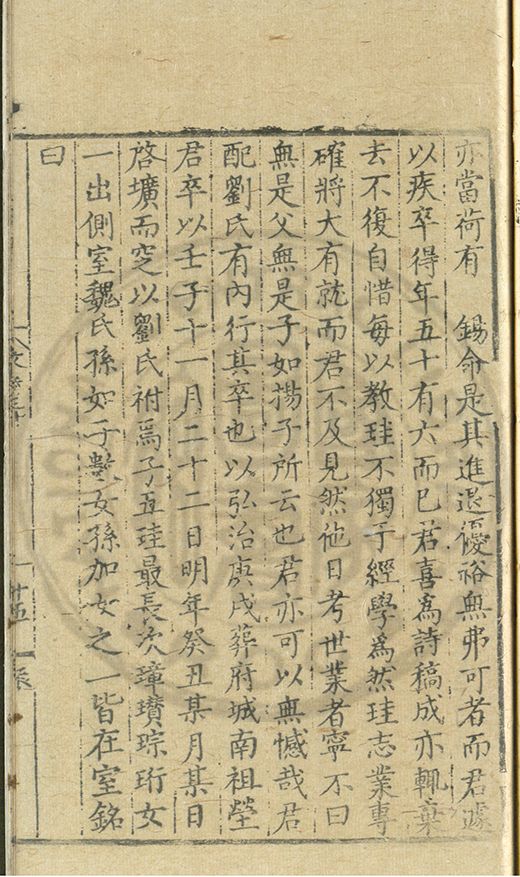 亦當荷有　錫命是其進退優裕無弗可者而君遽
以疾卒得年五十有六而已君喜為詩稿成亦輒棄
去不復自惜每以教珪不獨于經學為然珪志業專
確將大有就而君不及見然他日考世業者寧不曰
無是父無是子如揚子所云也君亦可以無憾哉君
配劉氏有內行其卒也以弘治庚戌葬府城南祖塋
君卒以壬子十一月二十二日明年癸丑某月某日
啓壙而窆以劉氏祔焉子五珪最長次璋瓚琮珩女
一出側室魏氏孫如子數女孫加女之一皆在室銘
曰
十五